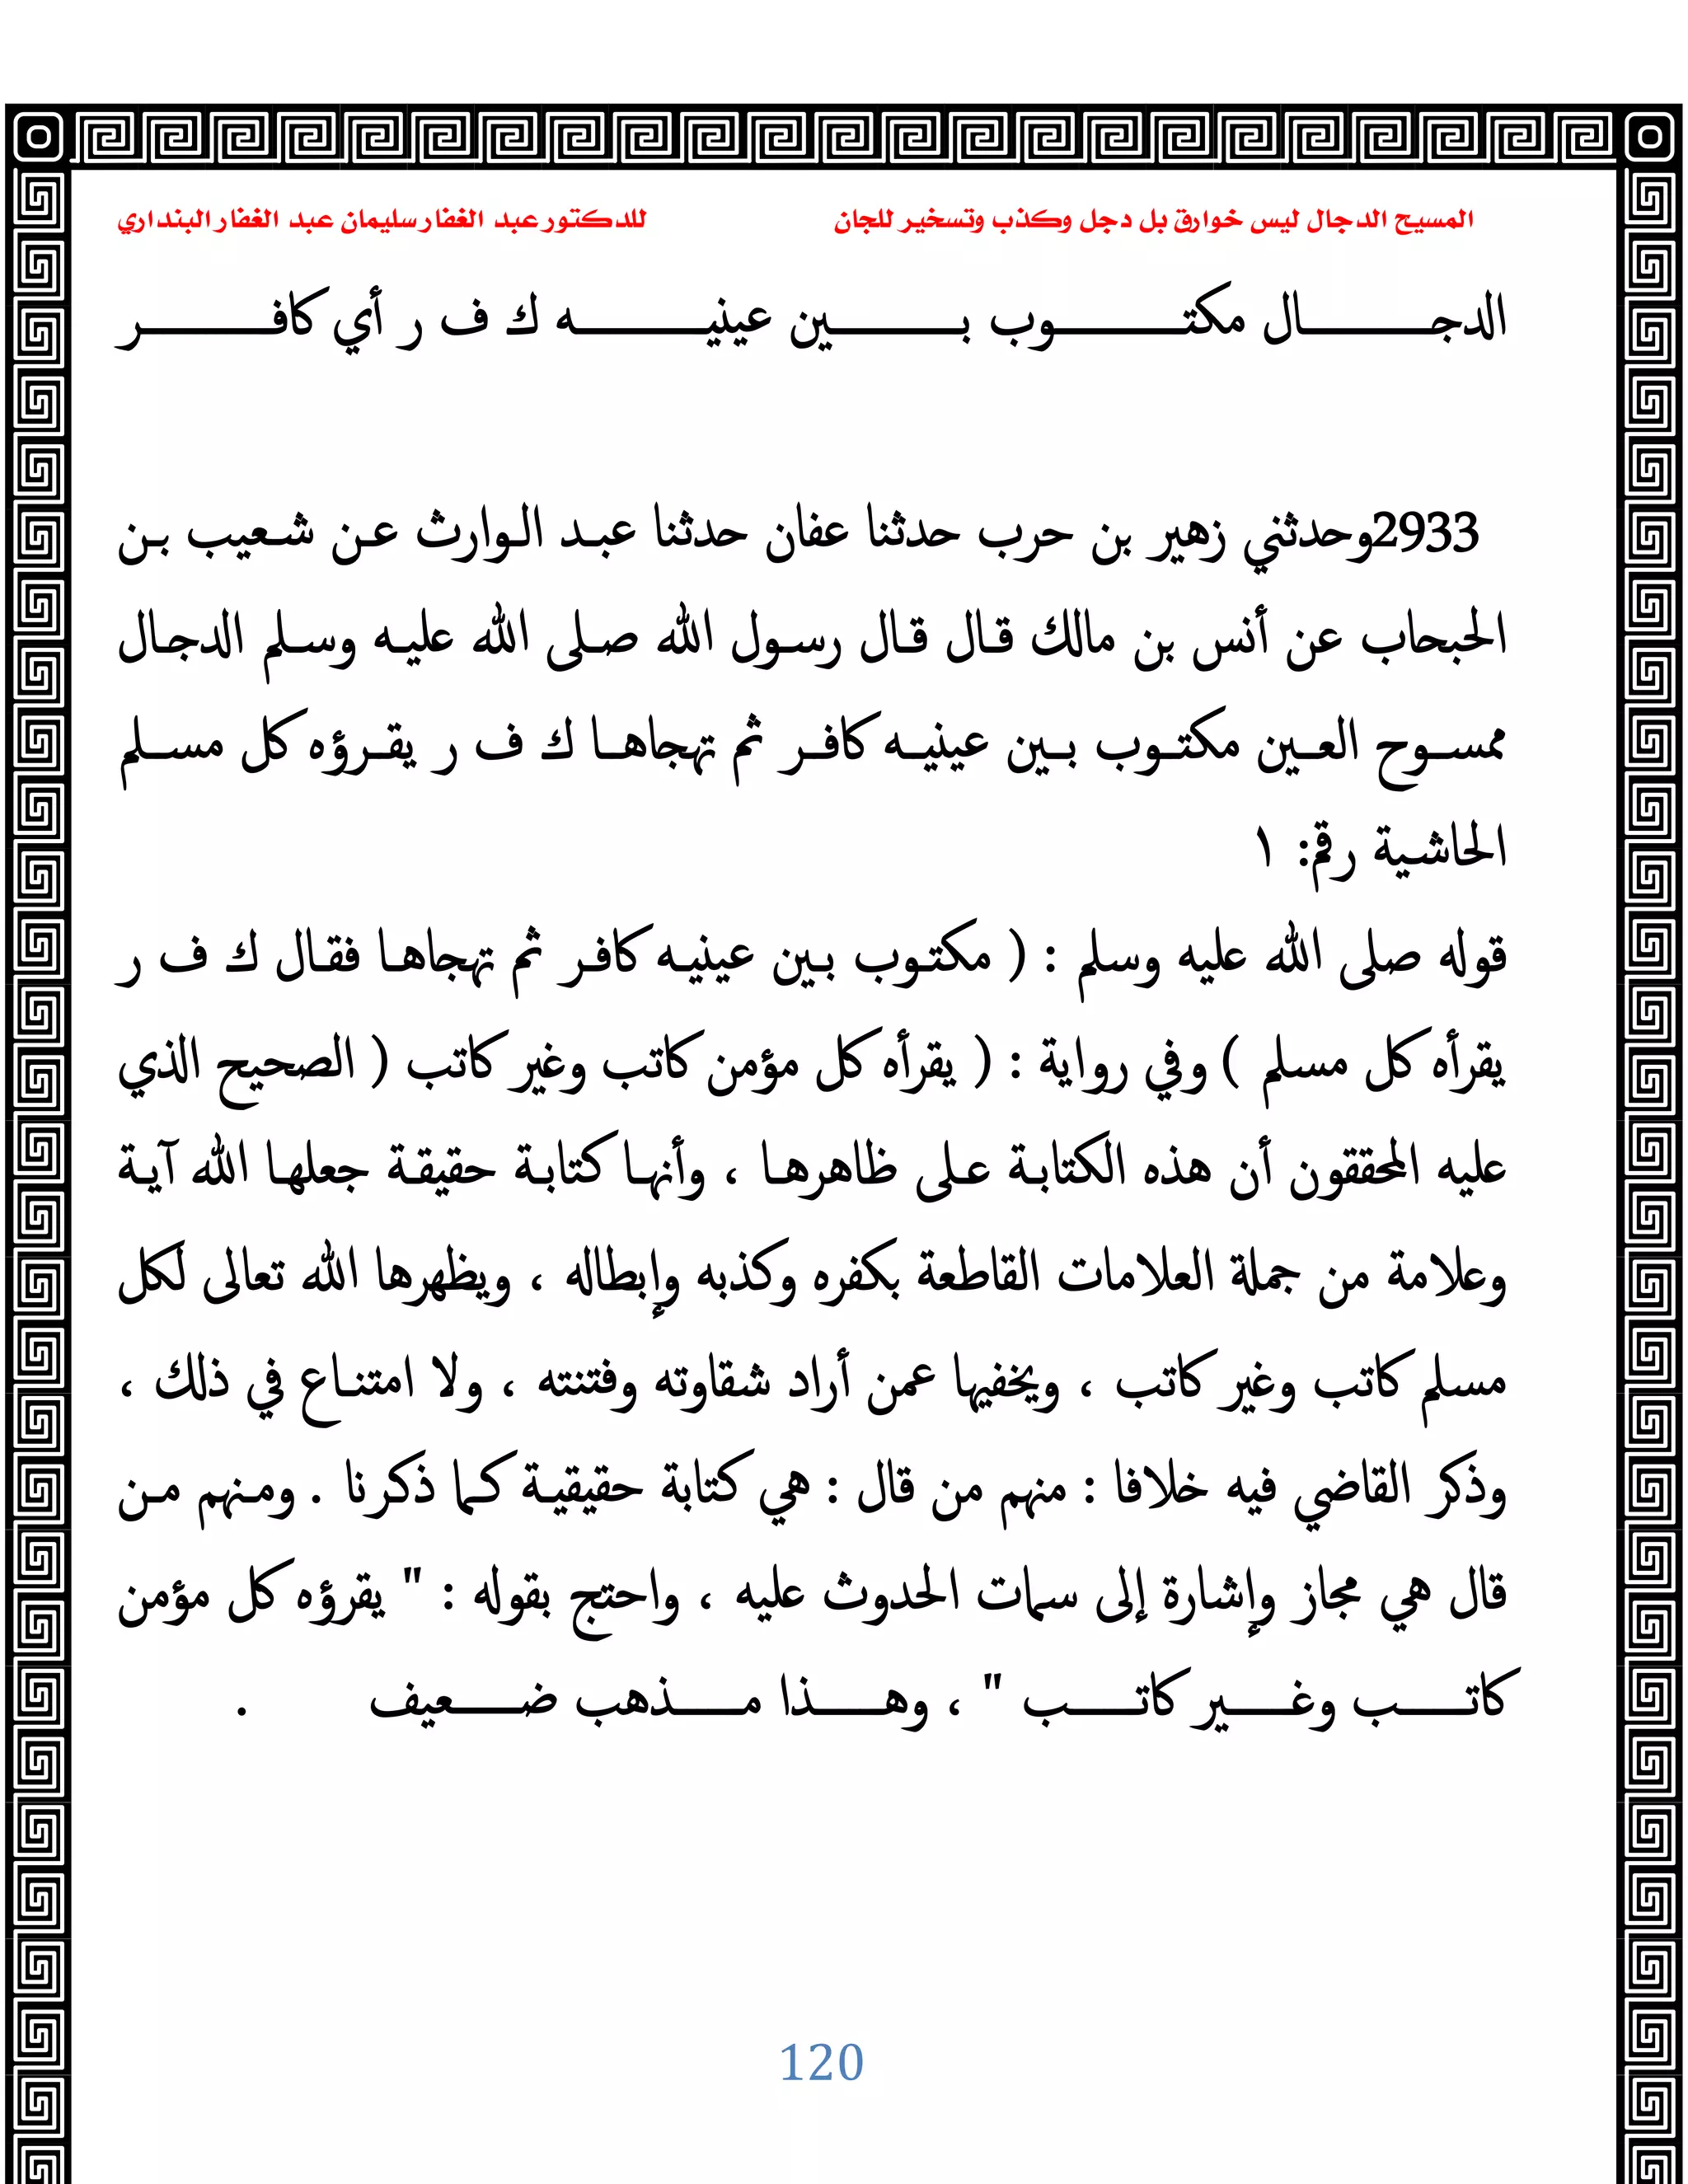 المسيح الدجال ليس خوارق بل دجل وكذب وتسخير للجان للدكتور عبد الغفار سليمان عبد الغفار البنداري
الدجال مكتوب بين عينيه ك ف ر أي كافر
2933وحدثني زهير بن حرب حدثنا عفان حدثنا عبد الوارث عن شعيب بن
الحبحاب عن أنس بن مالك قال قال رسول الله صلى الله عليه وسلم الدجال
ممسوح العين مكتوب بين عينيه كافر ثم تهجاها ك ف ر يقرؤه كل مسلم
الحاشية رقم: ١
قوله صلى الله عليه وسلم : ( مكتوب بين عينيه كافر ثم تهجاها فقال ك ف ر
يقرأه كل مسلم ) وفي رواية : ( يقرأه كل مؤمن كاتب وغير كاتب ( الصحيح الذي
عليه المحققون أن هذه الكتابة على ظاهرها ، وأنها كتابة حقيقة جعلها الله آية
وعلامة من جملة العلامات القاطعة بكفره وكذبه وإبطاله ، ويظهرها الله تعالى لكل
مسلم كاتب وغير كاتب ، ويخفيها عمن أراد شقاوته وفتنته ، ولا امتناع في ذلك ،
وذكر القاضي فيه خلافا : منهم من قال : هي كتابة حقيقية كما ذكرنا . ومنهم من
قال هي مجاز وإشارة إلى سمات الحدوث عليه ، واحتج بقوله : " يقرؤه كل مؤمن
كاتب وغير كاتب " ، وهذا مذهب ضعيف .
120